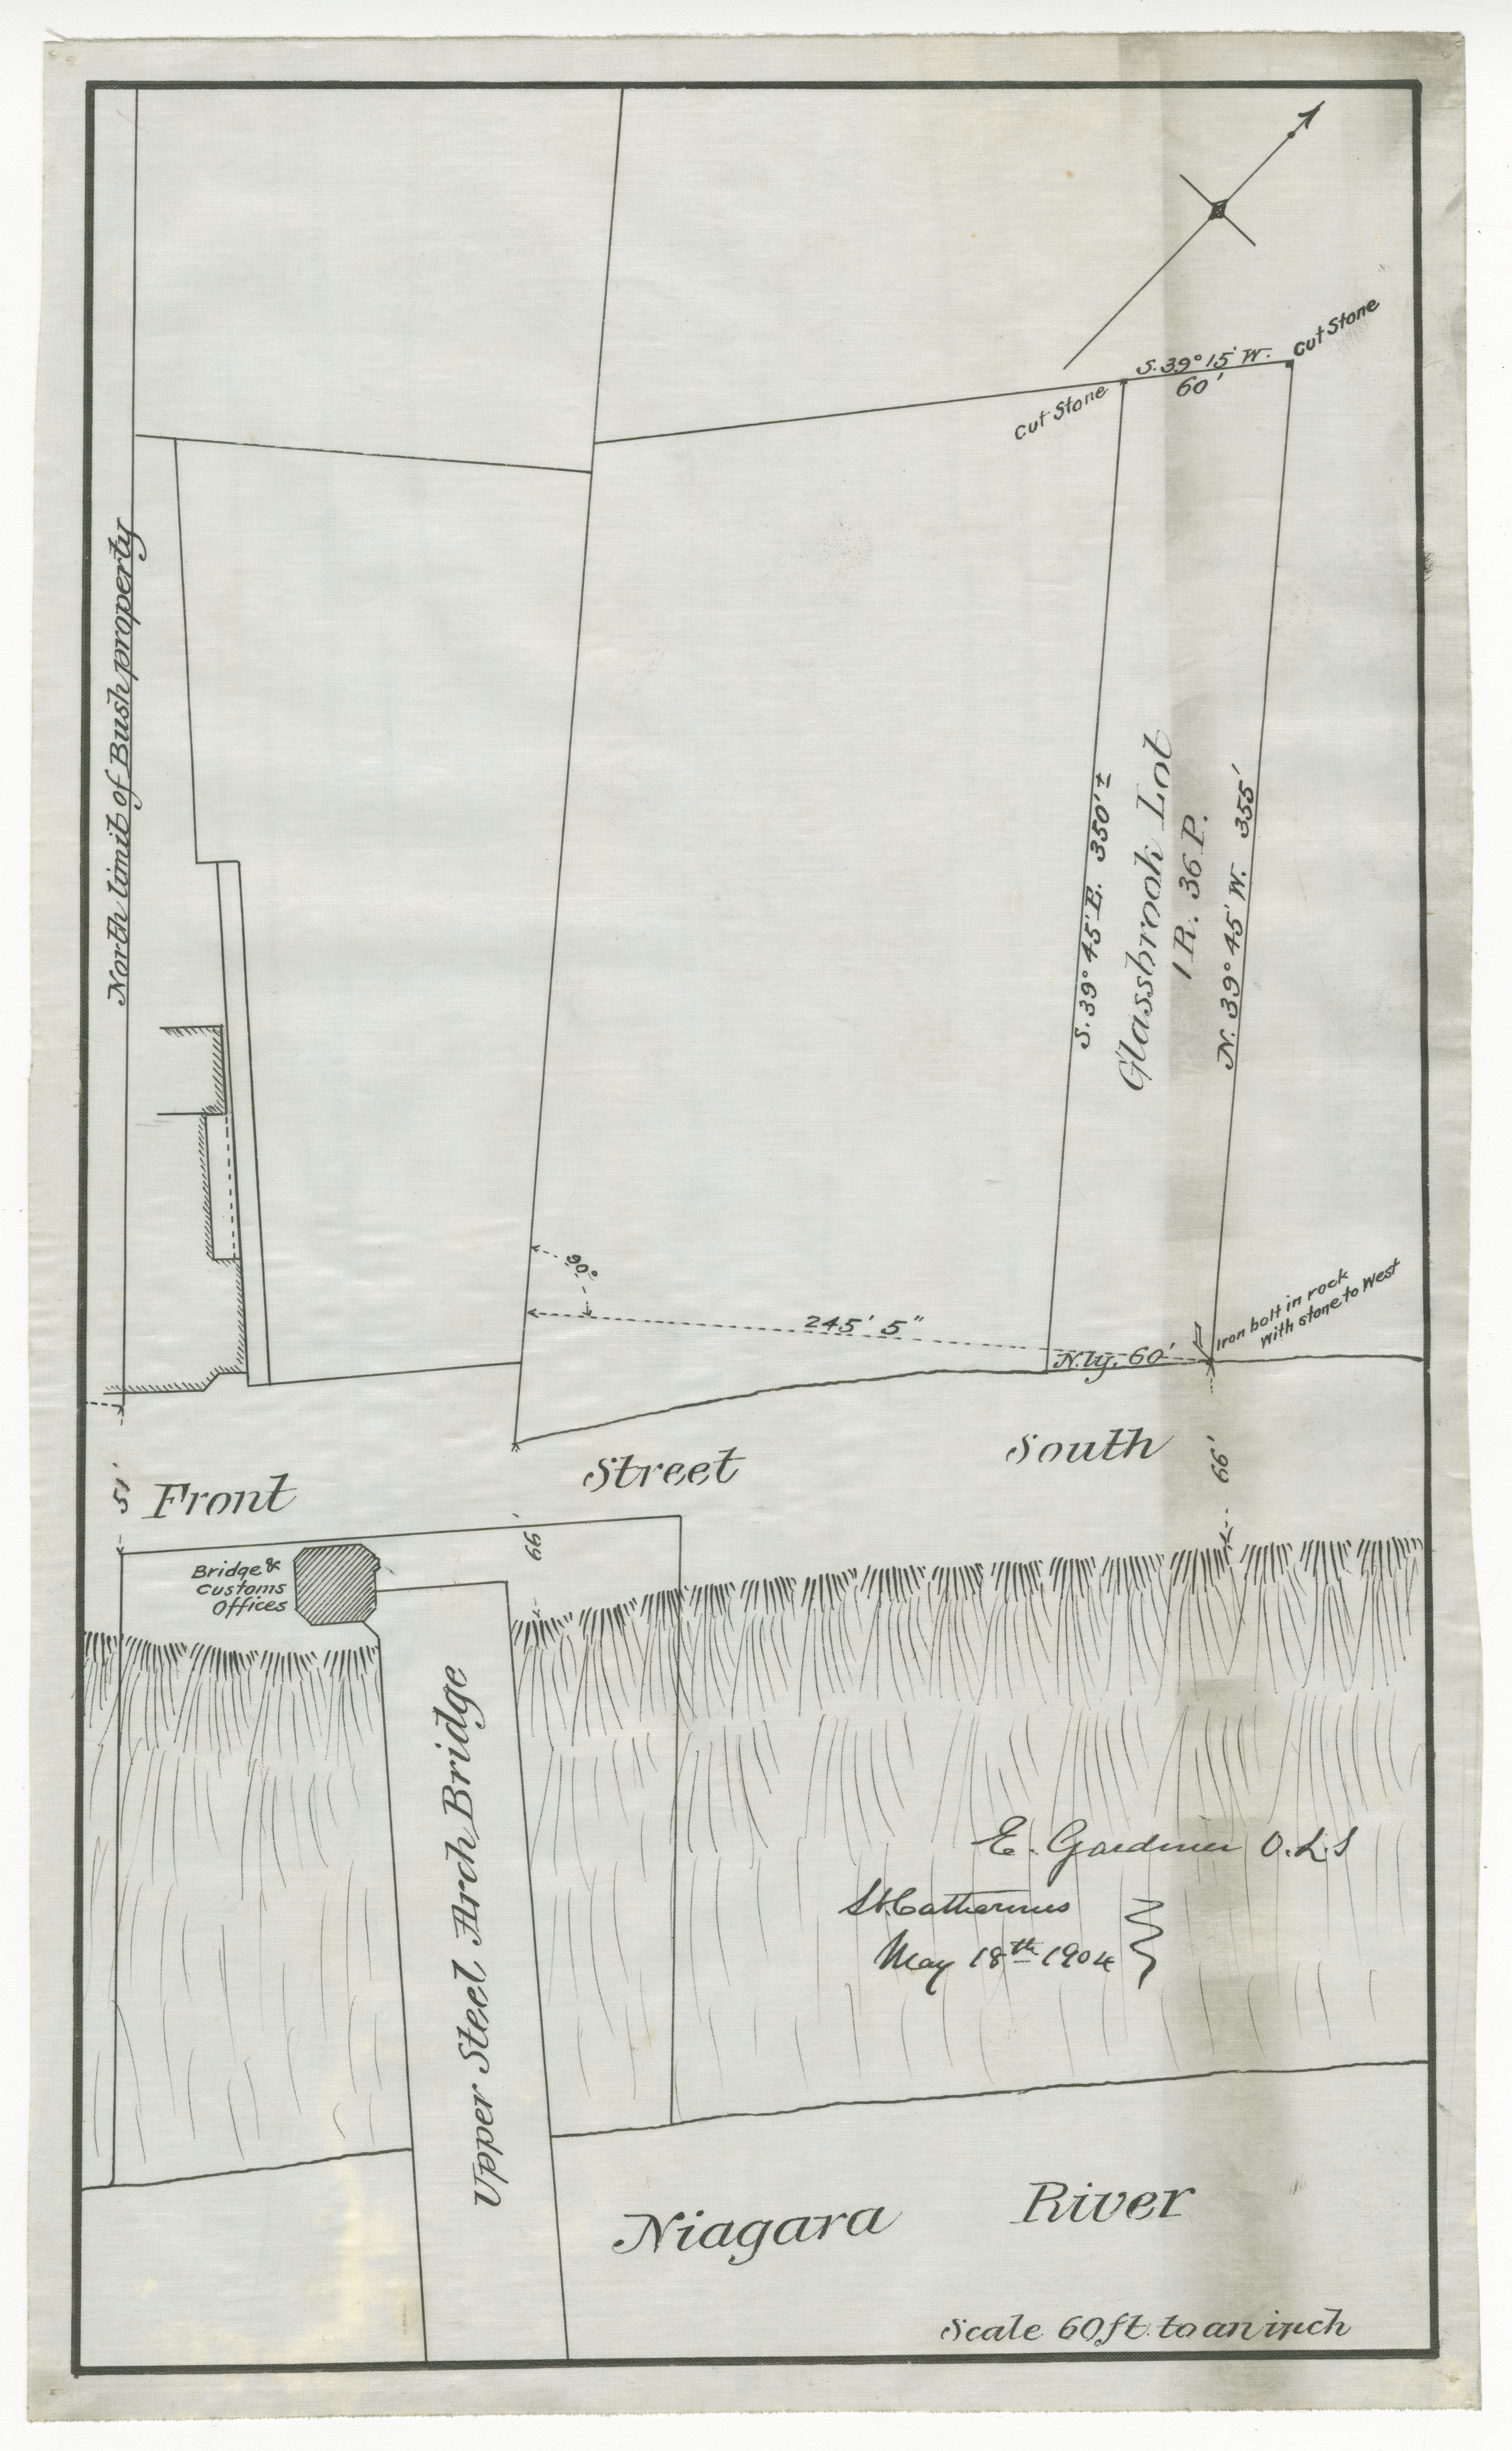 Cut Stone
S. 39° 15' W.
60'
Cut Stone
North limit of Bush property
S. 39° 45' E. 350' ±
Glassbrook Lot
1 R. 36 P.
N. 39° 45' W. 355'
90°
245' 5"
N.ly. 60'
Iron bolt in rock
with stone to West
51'
Front Street South
66'
66'
Bridge &
Customs
Offices
Upper Steel Arch Bridge
E. Gardiner O.L.S
St Catharines
May 18th 1904
Niagara River
Scale 60 ft. to an inch